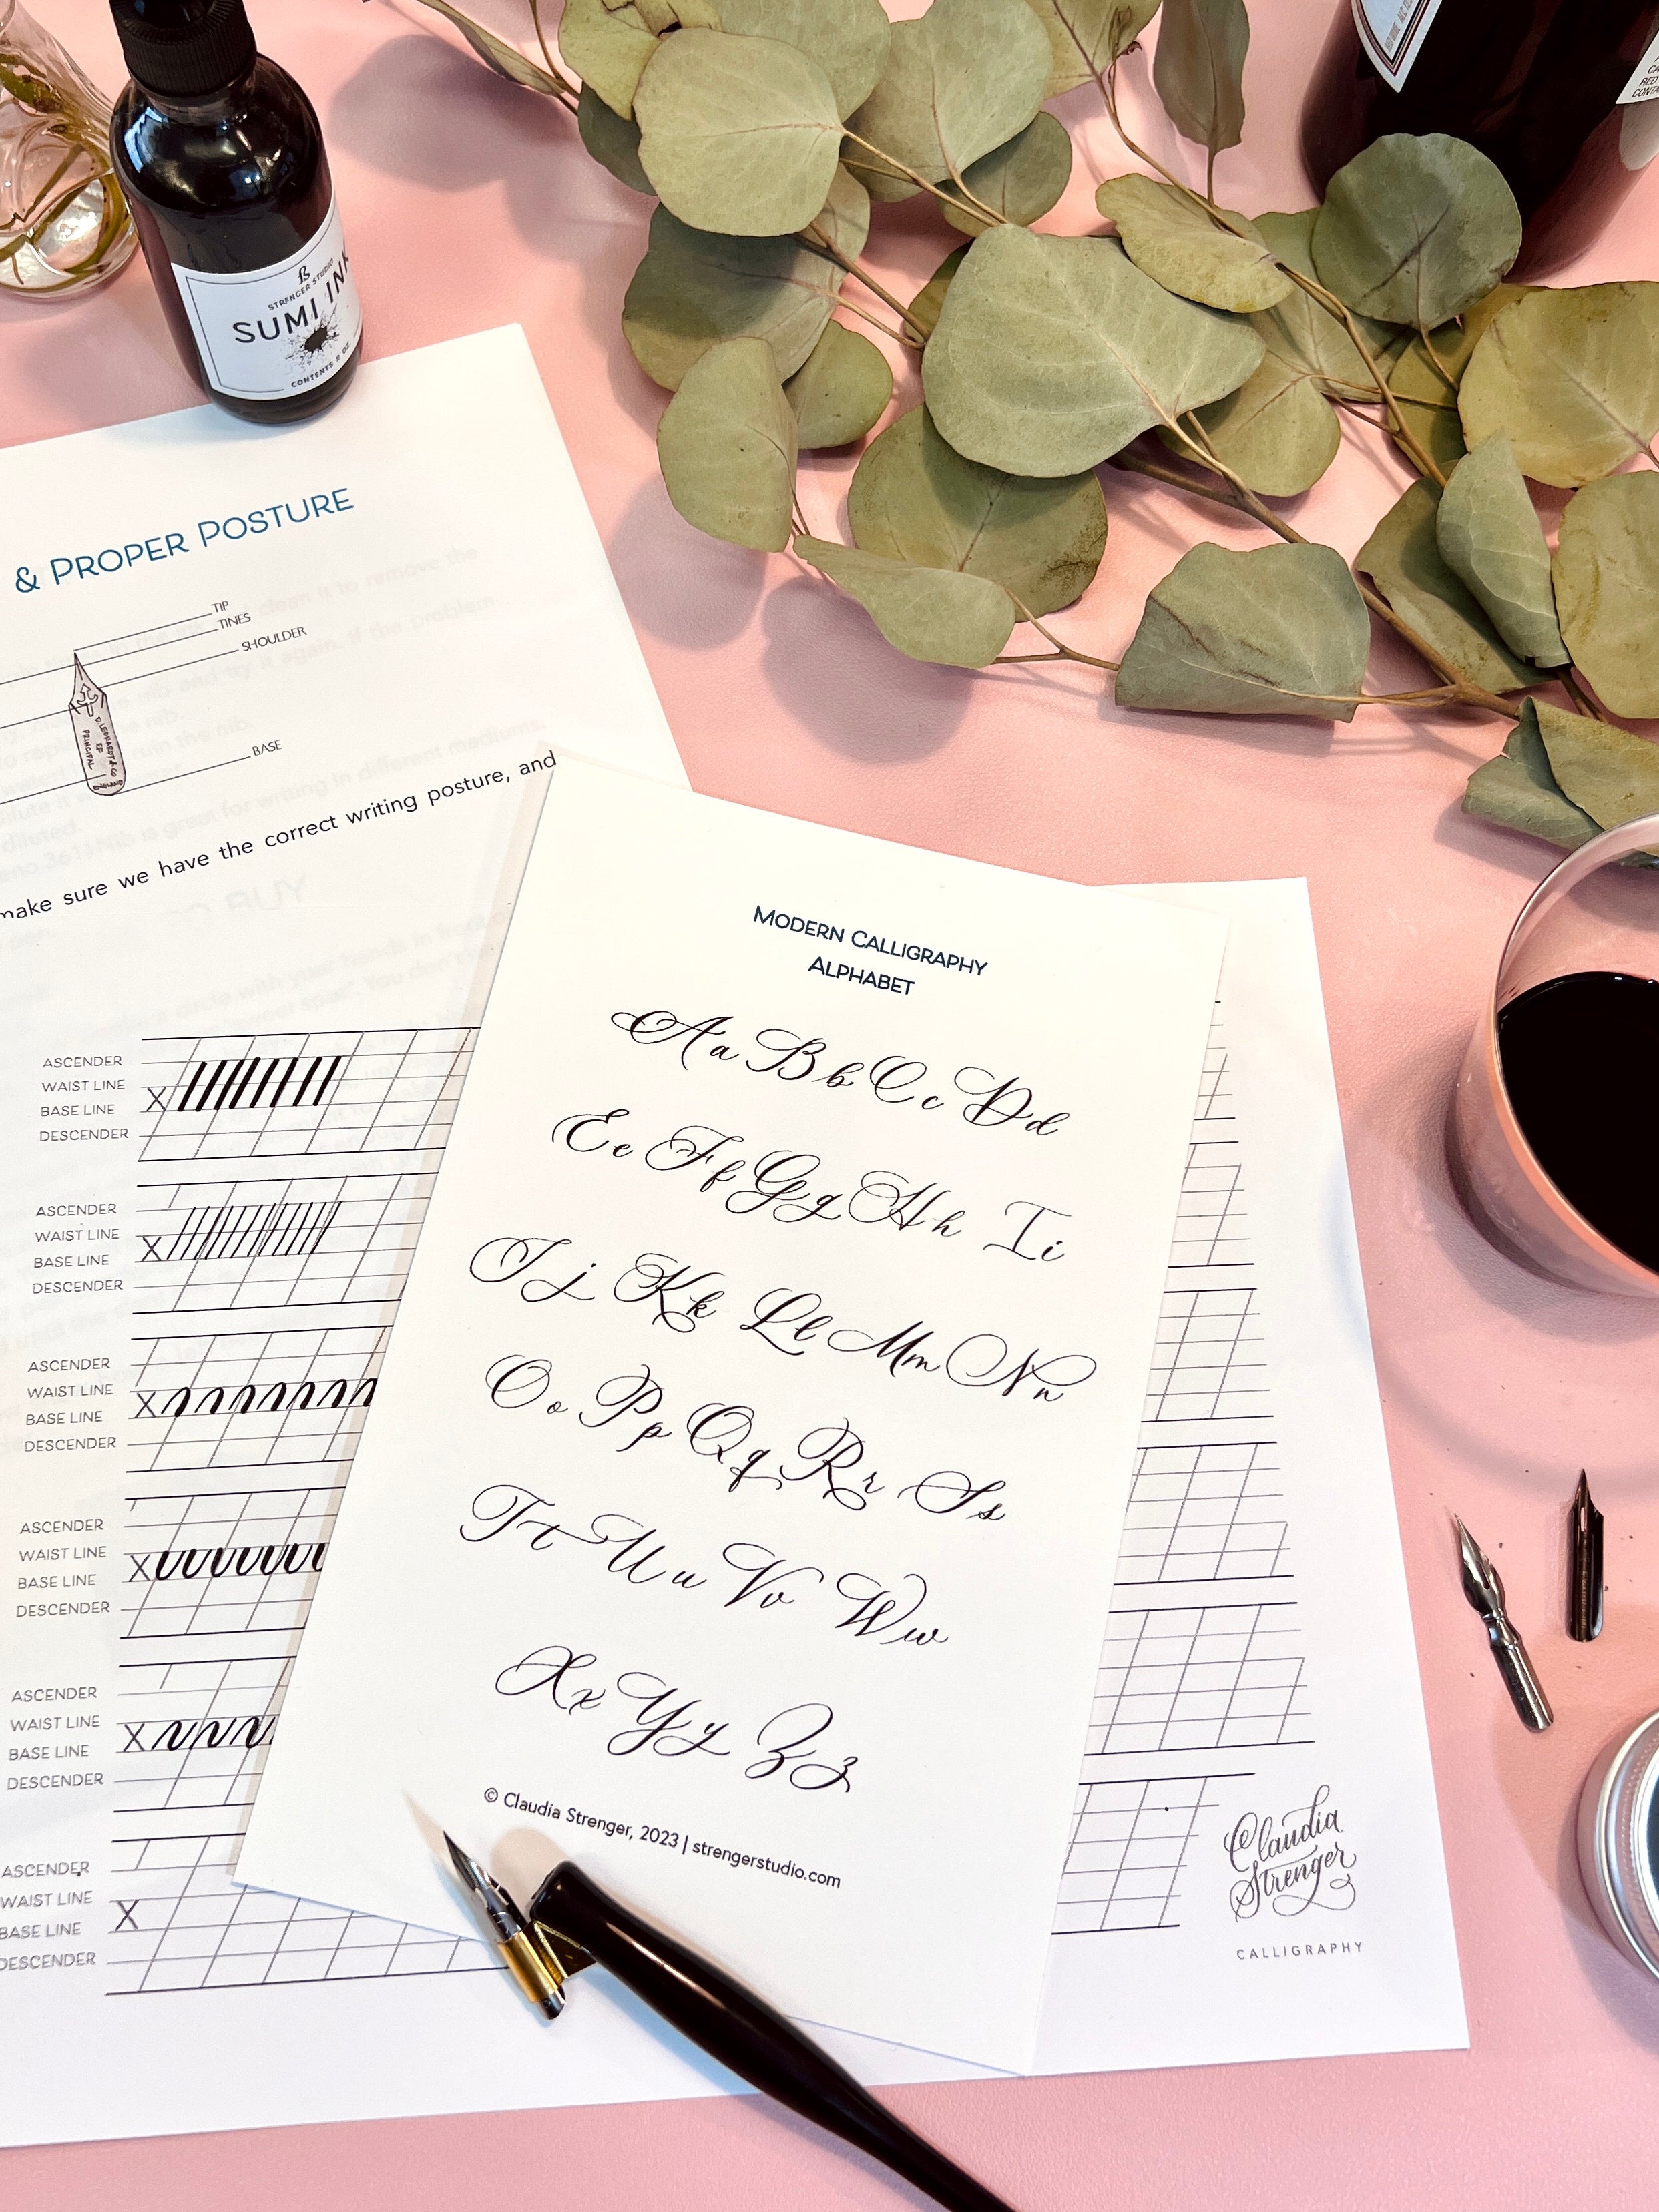 STRENGER STUDIO
SUMI INK
CONTENTS 2 OZ
RED
& PROPER POSTURE
TIP
TINES
SHOULDER
BASE
make sure we have the correct writing posture, and
ASCENDER
WAIST LINE
X
BASE LINE
DESCENDER
ASCENDER
WAIST LINE
X
BASE LINE
DESCENDER
ASCENDER
WAIST LINE
X
BASE LINE
DESCENDER
ASCENDER
WAIST LINE
X
BASE LINE
DESCENDER
ASCENDER
WAIST LINE
X
BASE LINE
DESCENDER
ASCENDER
WAIST LINE
X
BASE LINE
DESCENDER
MODERN CALLIGRAPHY
ALPHABET
Aa Bb Cc Dd
Ee Ff Gg Hh Ii
Jj Kk Ll Mm Nn
Oo Pp Qq Rr Ss
Tt Uu Vv Ww
Xx Yy Zz
© Claudia Strenger, 2023 | strengerstudio.com
Claudia
Strenger
CALLIGRAPHY